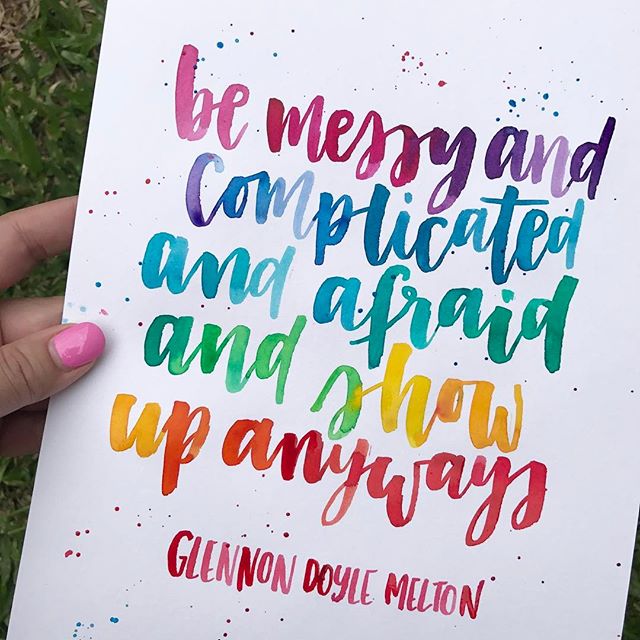 be messy and
complicated
and afraid
and show
up anyways
GLENNON DOYLE MELTON